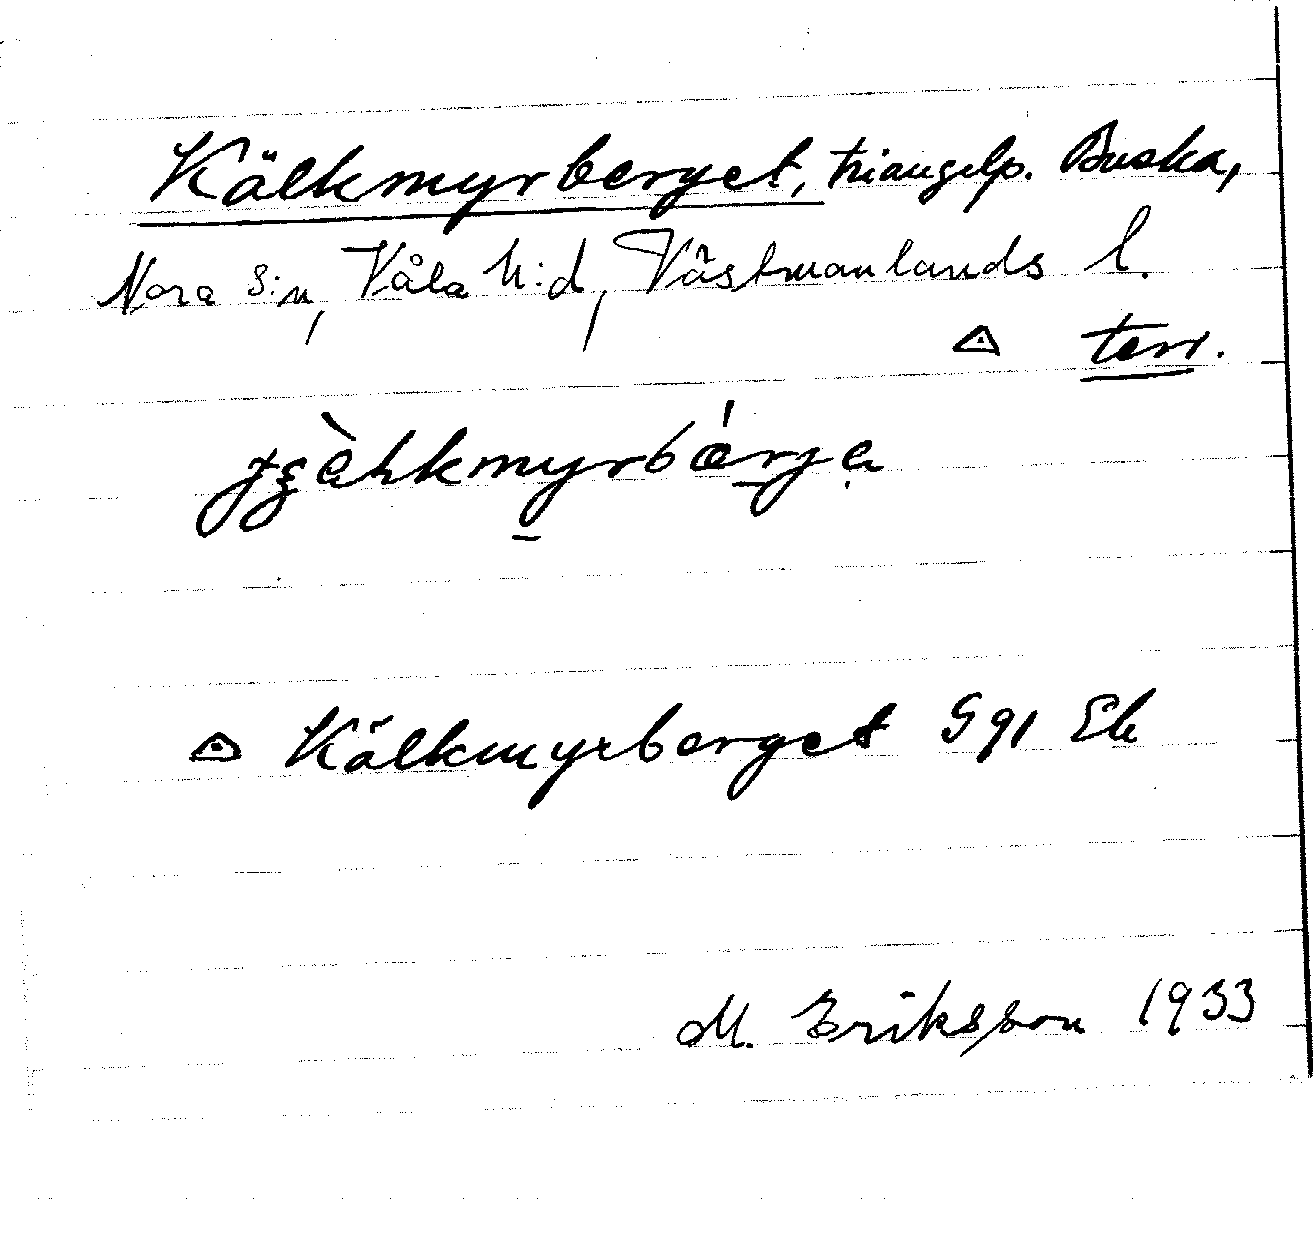 Kälkmyrberget, triangelp. Buska,
Nora s:n, Våla h:d, Västmanlands l.
terr.
Kälkmyrberget 591 Ek
M. Eriksson 1933